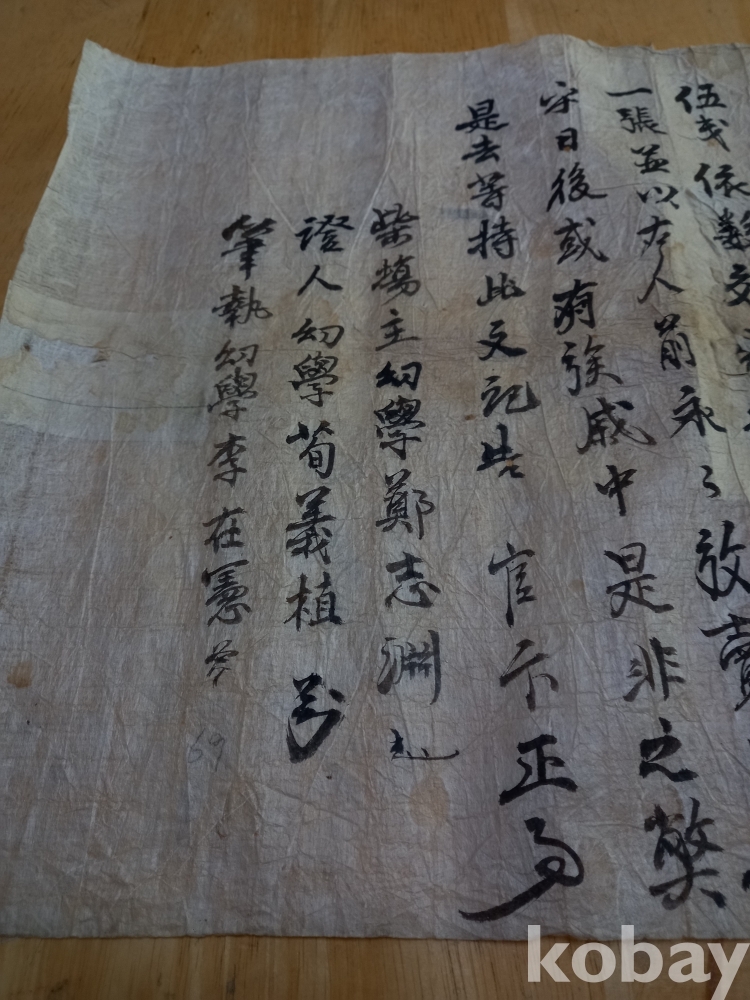 伍戔依數交
一張並以右人前永〻放賣
乎日後或有族戚中是非之弊
是去等持此文記告 官卞正事
柴場主幼學鄭志淵
證人幼學荀義植
筆執幼學李在憲
69
kobay